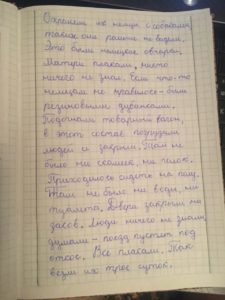 Охраняли их немцы с собаками,
таких они раньше не видели.
Это были немецкие овчарки.
Матери плакали, никто
ничего не знал. Если что-то
немцам не нравилось – били
резиновыми дубинками.
Подогнали товарный вагон,
в этот состав погрузили
людей и закрыли. Там не
было ни скамеек, ни полок.
Приходилось сидеть на полу.
Там не было ни воды, ни
туалета. Двери закрыли на
засов. Люди ничего не знали,
думали – поезд пустят под
откос. Все плакали. Так
везли их трое суток.